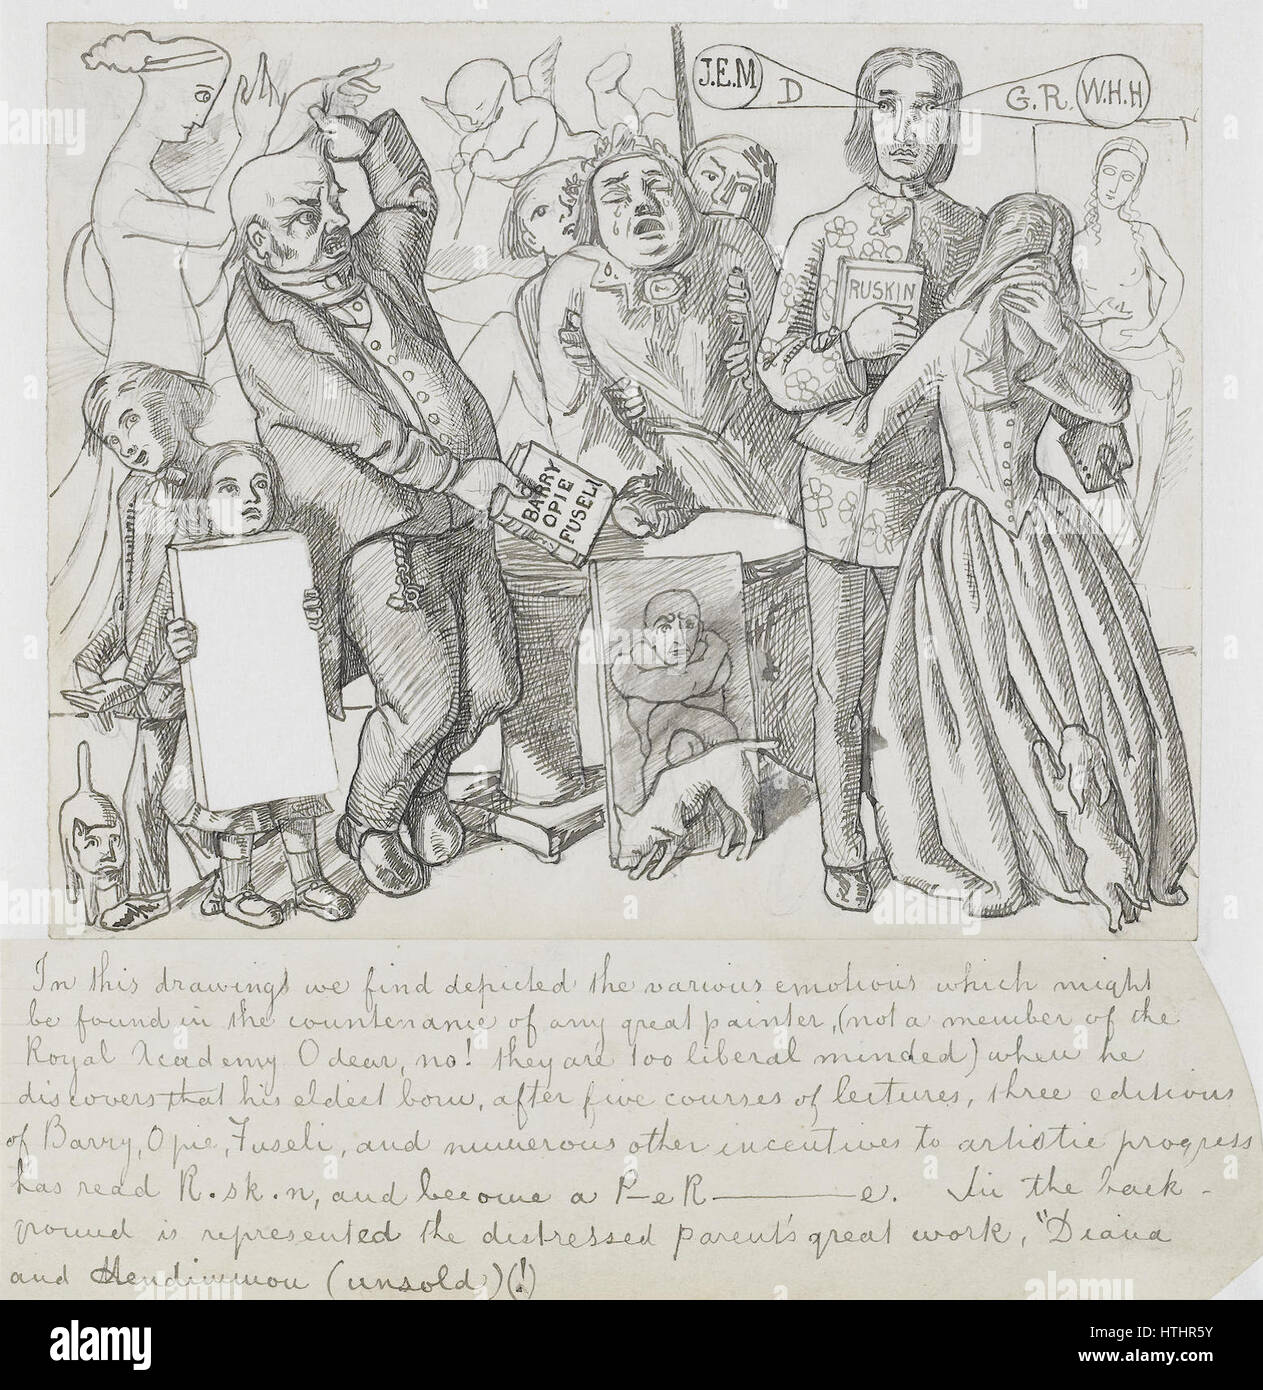 J.E.M
D
G.R.
W.H.H
RUSKIN
BARRY
OPIE
FUSELI
In this drawings we find depicted the various emotions which might
be found in the countenance of any great painter, (not a member of the
Royal Academy O dear, no! they are too liberal minded) when he
discovers that his eldest born, after five courses of lectures, three editions
of Barry, Opie, Fuseli, and numerous other incentives to artistic progress
has read R.sk.n, and become a P-eR———e. In the back-
ground is represented the distressed parent's great work, "Diana
and Hendimmon (unsold)(!)
alamy
Image ID: HTHR5Y
www.alamy.com